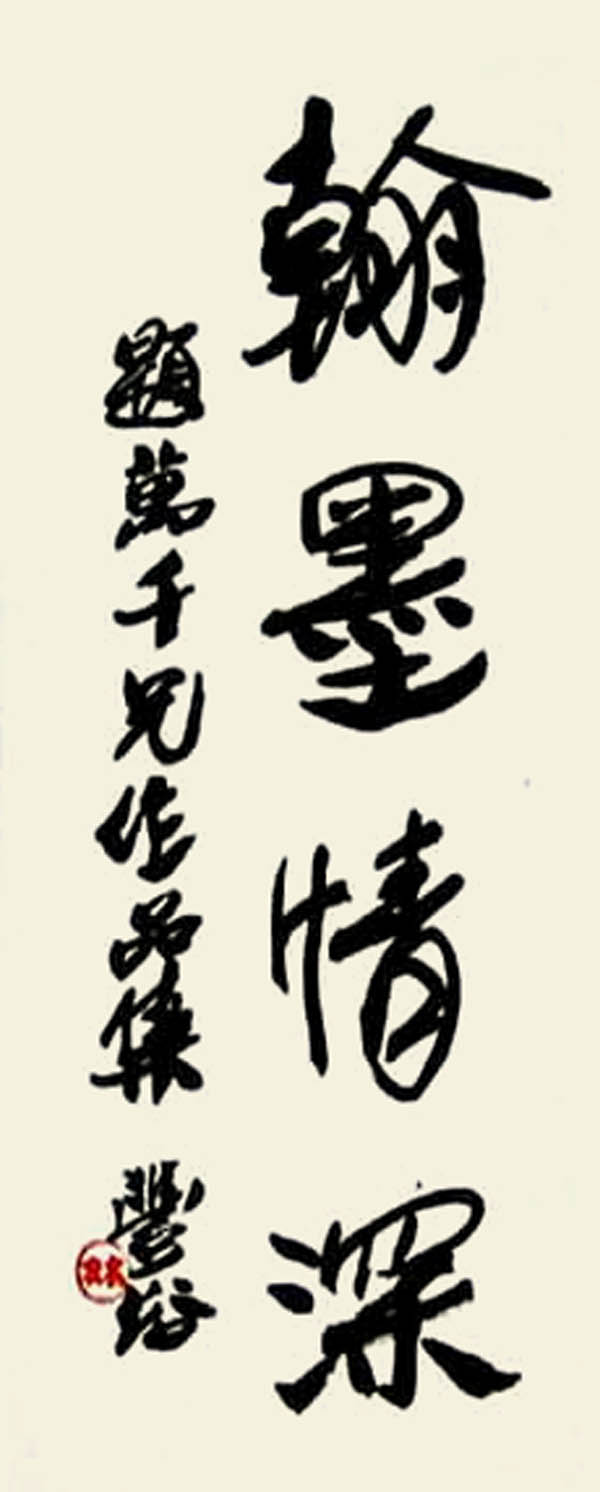 翰墨情深
題萬千兄作品集 豐